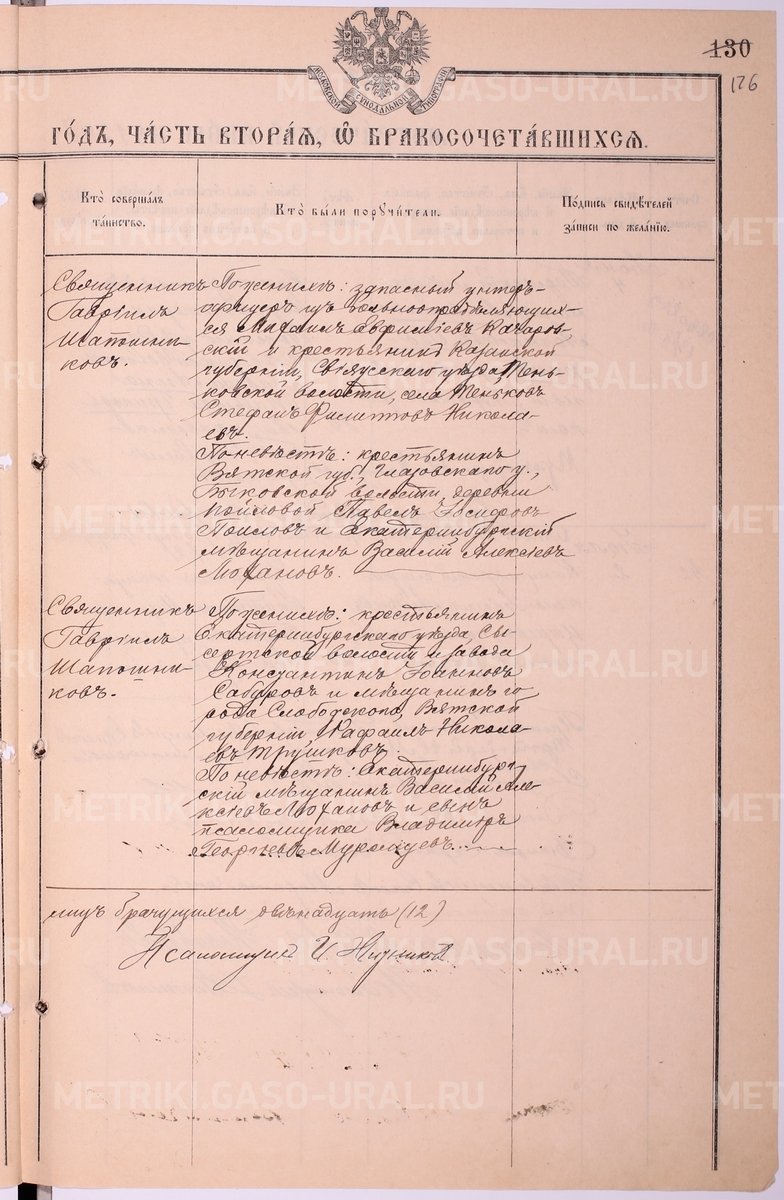 130
126
МОСКОВСКОЙ СѴНОДАЛЬНОЙ ТИПОГРАФІИ
ГО́ДЪ, ЧА́СТЬ ВТОРА́Ѧ, Ѽ БРАКОСОЧЕТА́ВШИХСѦ.
Кто̀ соверша́лъ
та́инство.
Кто̀ бы́ли порꙋчи́тели.
По́дпись свидѣ́телей
за́писи по жела́нїю.
Священникъ
Гавріилъ
Шапошни-
ковъ.
По женихѣ: запасный унтеръ-
офицеръ изъ вольноопредѣляющих-
ся Михаилъ Евфиміевъ Качаров-
скій и крестьянинъ Казанской
губерніи, Свіяжскаго уѣзда, Тень-
ковской волости, села Теньковъ
Стефанъ Филипповъ Никола-
евъ.
По невѣстѣ: крестьянинъ
Вятской губ., Глазовскаго у.,
волости, деревни
Павелъ Іосифовъ
и Екатеринбургскій
мѣщанинъ Василій Алексѣевъ
Моѳановъ.
Священникъ
Гавріилъ
Шапошни-
ковъ.
По женихѣ: крестьянинъ
Екатеринбургскаго уѣзда, Сы-
сертской волости и завода
Константинъ Іоанновъ
и мѣщанинъ го-
рода Слободскаго, Вятской
губерніи Рафаилъ Никола-
евъ Трушковъ.
По невѣстѣ: Екатеринбург-
скій мѣщанинъ Василій Але-
ксѣевъ Моѳановъ и сынъ
псаломщика Владиміръ
Георгіевъ Муромцевъ.
лицъ брачущихся двѣнадцать (12)
Псаломщикъ И.
METRIKI.GASO-URAL.RU